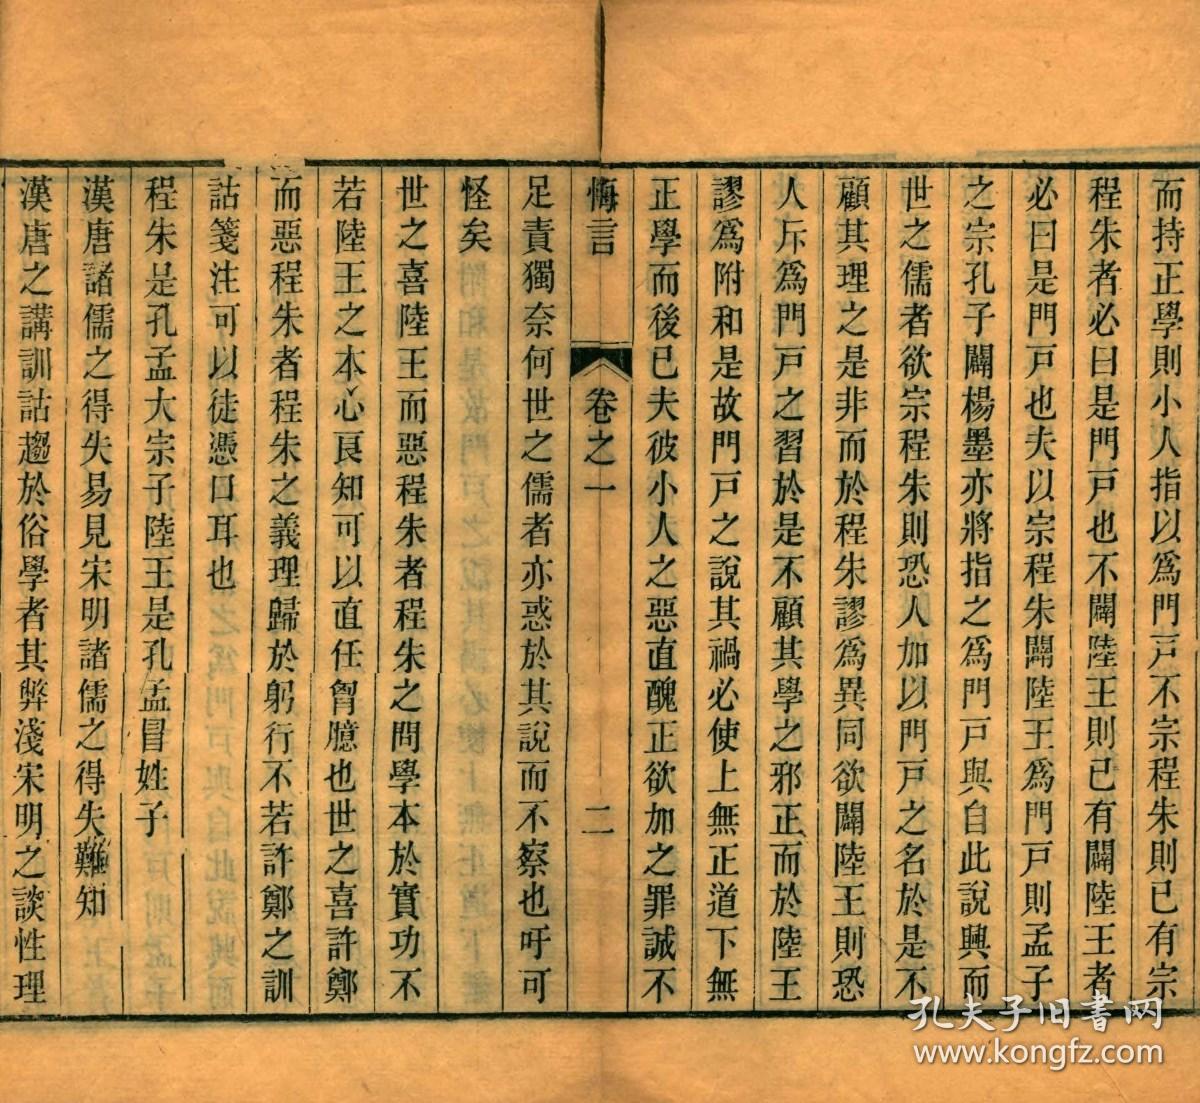 而持正學則小人指以爲門戸不宗程朱則已有宗
程朱者必曰是門戸也不闢陸王則已有闢陸王者
必曰是門戸也夫以宗程朱闢陸王爲門戸則孟子
之宗孔子闢楊墨亦將指之爲門戸與自此說興而
世之儒者欲宗程朱則恐人加以門戸之名於是不
顧其理之是非而於程朱謬爲異同欲闢陸王則恐
人斥爲門戸之習於是不顧其學之邪正而於陸王
謬爲附和是故門戸之說其禍必使上無正道下無
正學而後已夫彼小人之惡直醜正欲加之罪誠不
悔言 卷之一 二
足責獨奈何世之儒者亦惑於其說而不察也吁可
怪矣
世之喜陸王而惡程朱者程朱之問學本於實功不
若陸王之本心良知可以直任胷臆也世之喜許鄭
而惡程朱者程朱之義理歸於躬行不若許鄭之訓
詁箋注可以徒憑口耳也
程朱是孔孟大宗子陸王是孔孟冒姓子
漢唐諸儒之得失易見宋明諸儒之得失難知
漢唐之講訓詁趨於俗學者其弊淺宋明之談性理
孔夫子旧书网
www.kongfz.com